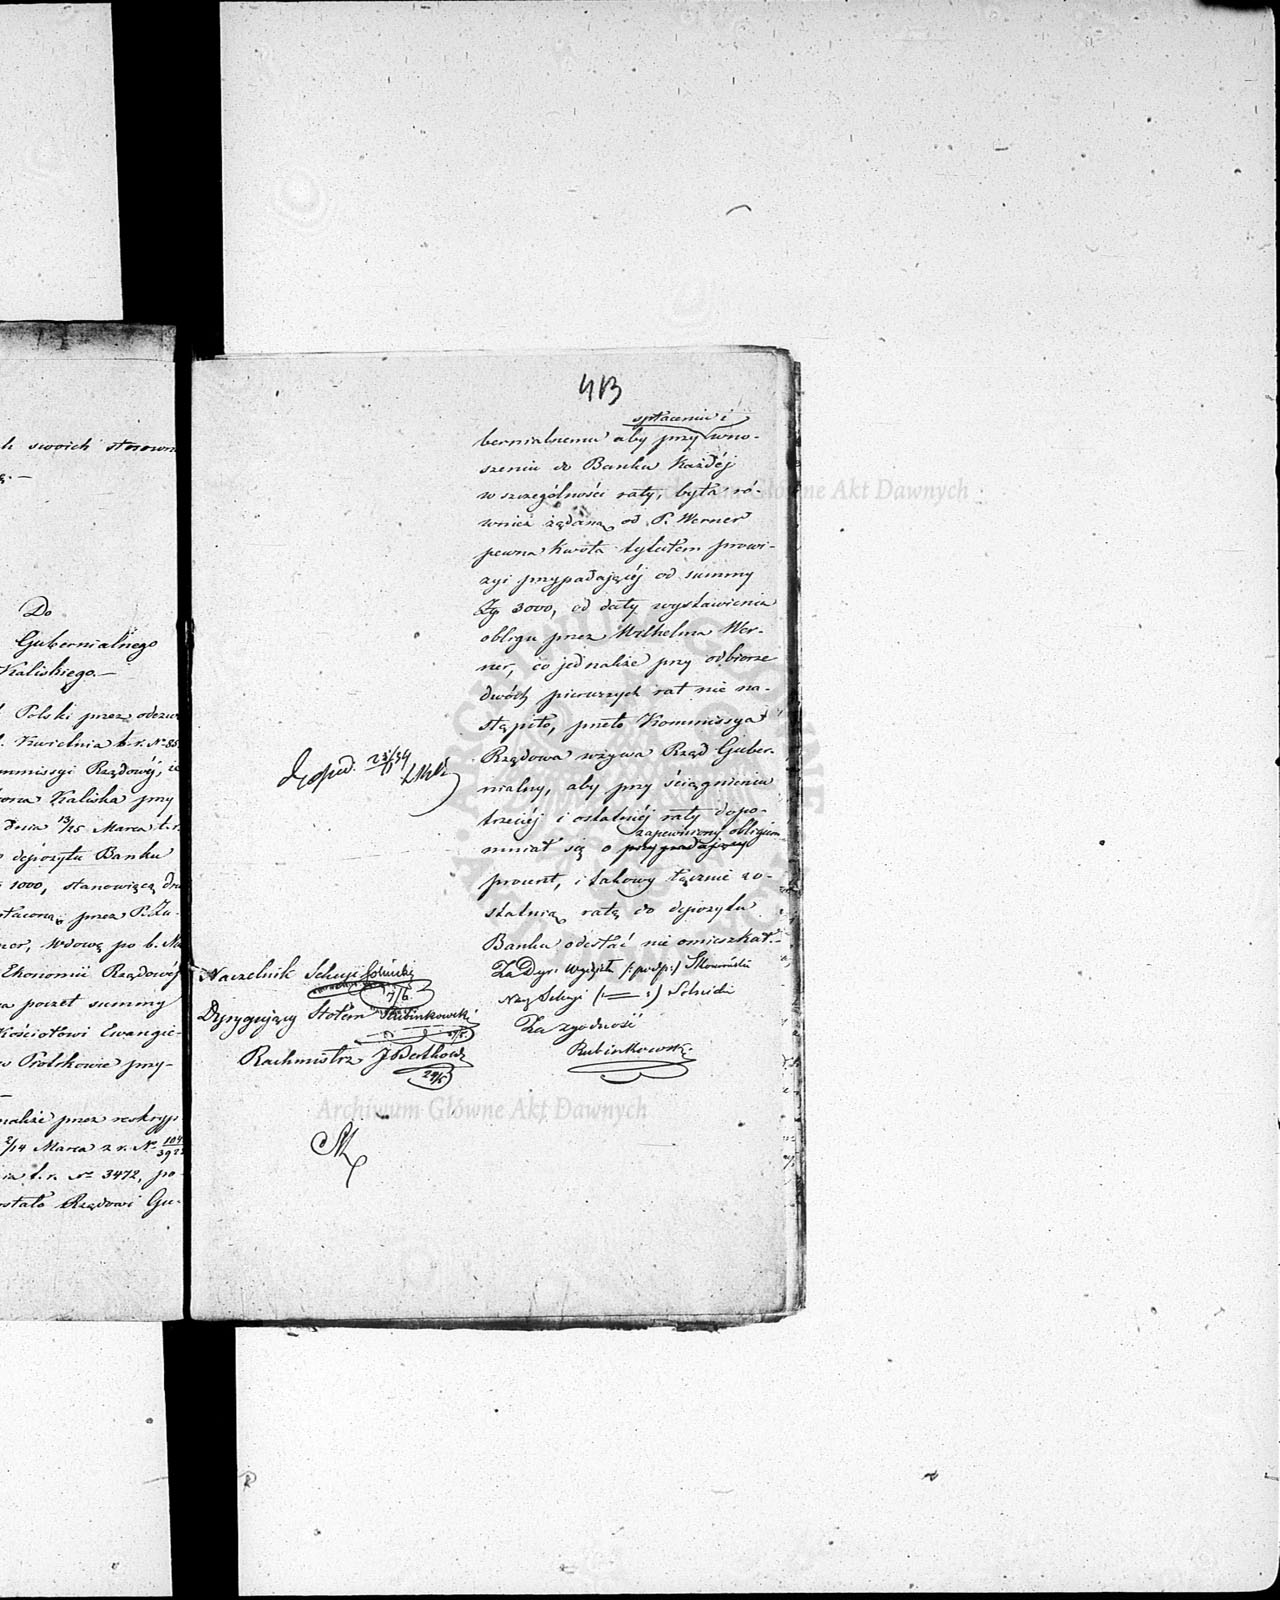 h swoich stosown
ę. —
Do
Gubernialnego
Kaliskiego. —
Polski przez odezw
Kwietnia t. r. No 85
mmissyi Rządowej, iż
Kaliska przy
dnia 13/25 Marca t. r.
depozytu Banku
1000, stanowiącą dru
płaconą przez P. Zu-
ner, wdowę po b. Na
Ekonomii Rządowej
na poczet summy
Kościołowi Ewangie-
w Prolskowie przy-
nakże przez reskryp
2/14 Marca z r. No 104/3922
ia t. r. No 3472, po-
ostało Rządowi Gu-
413
spłaceniu i
bernialnemu aby przy wno-
szeniu do Banku Każdéj
w szczególności raty, była ró-
wnież żądaną od P. Werner
pewna Kwota tytułem prowi-
zyi przypadającéj od summy
Zp 3000, od daty wystawienia
obligu przez Wilhelma Wer-
ner, co jednakże przy odbiorze
dwóch pierwszych rat nie na-
stąpiło, przeto Kommissya
Rządowa wzywa Rząd Guber-
nialny, aby przy ściągnieniu
trzeciéj i ostatniéj raty dopo-
zapewniony obligiem
mniał się o przypadający
procent, i takowy łącznie zo-
statnią ratą do depozytu
Banku odesłać nie omieszkał. -
Za Dyr: Wydziału (: podp :) Skowroński
Nzg Sekcyi (: — :)
Za zgodność
Rubinkowski
Exped. 23/11 54
Naczelnik Sekcyi
7/6
Dyrygujący Stołem Rubinkowski
Rachmistrz J. Bertholdi
29/5
Archiwum Główne Akt Dawnych
Archiwum Główne Akt Dawnych